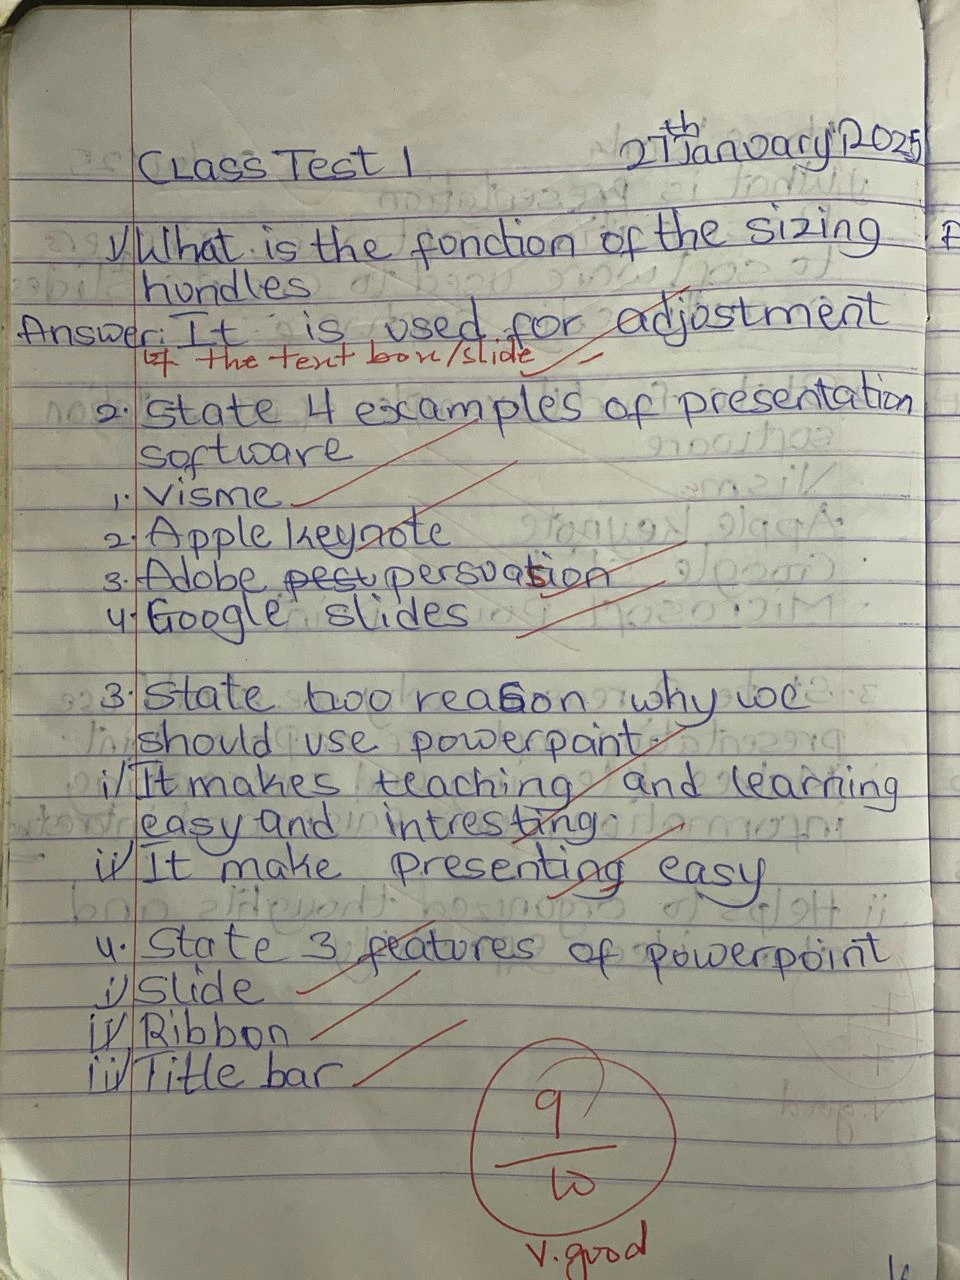 Class Test 1 27th January 2025
1) What is the fonction of the sizing
hondles
Answer: It is used for adjostment
of the text box/slide
2. State 4 examples of presentation
software
1. Visme
2. Apple keynote
3. Adobe pest persuasion
4. Google slides
3. State two reason why we
should use powerpoint
i) It makes teaching and learning
easy and intresting
ii) It make presenting easy
4. State 3 features of powerpoint
i) Slide
ii) Ribbon
iii) Title bar
9
10
v.good